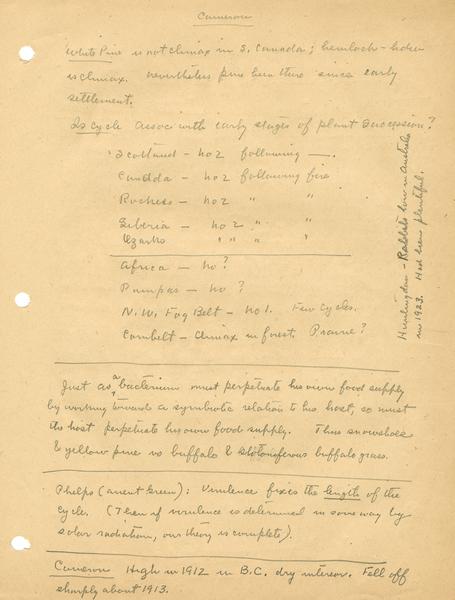 Cameron
White Pine is not climax in S. Canada; hemlock-
is climax. nevertheless pine been there since early
settlement.
Is cycle assoc with early stages of plant succession?
Scotland - no 2 following —.
Canada - no 2 following fire
Rockies - no 2 " "
Siberia - no 2 " "
Ozarks " " " "
Africa - no?
Pampas - no?
N.W. Fog Belt - no 1. Few Cycles.
Cornbelt - Climax in forest. Prairie?
Huntington - Rabbits low in Australia
in 1923. Had been plentiful.
Just as a bacterium must perpetuate his own food supply
by working towards a symbiotic relation to his host, so must
its host perpetuate his own food supply. Thus snowshoe
& yellow pine vs buffalo & stoloniferous buffalo grass.
Phelps (anent Green): Virulence fixes the length of the
cycle. (Then if virulence is determined in some way by
solar radiation, our theory is complete).
Cameron High in 1912 in B.C. dry interior. Fell off
sharply about 1913.